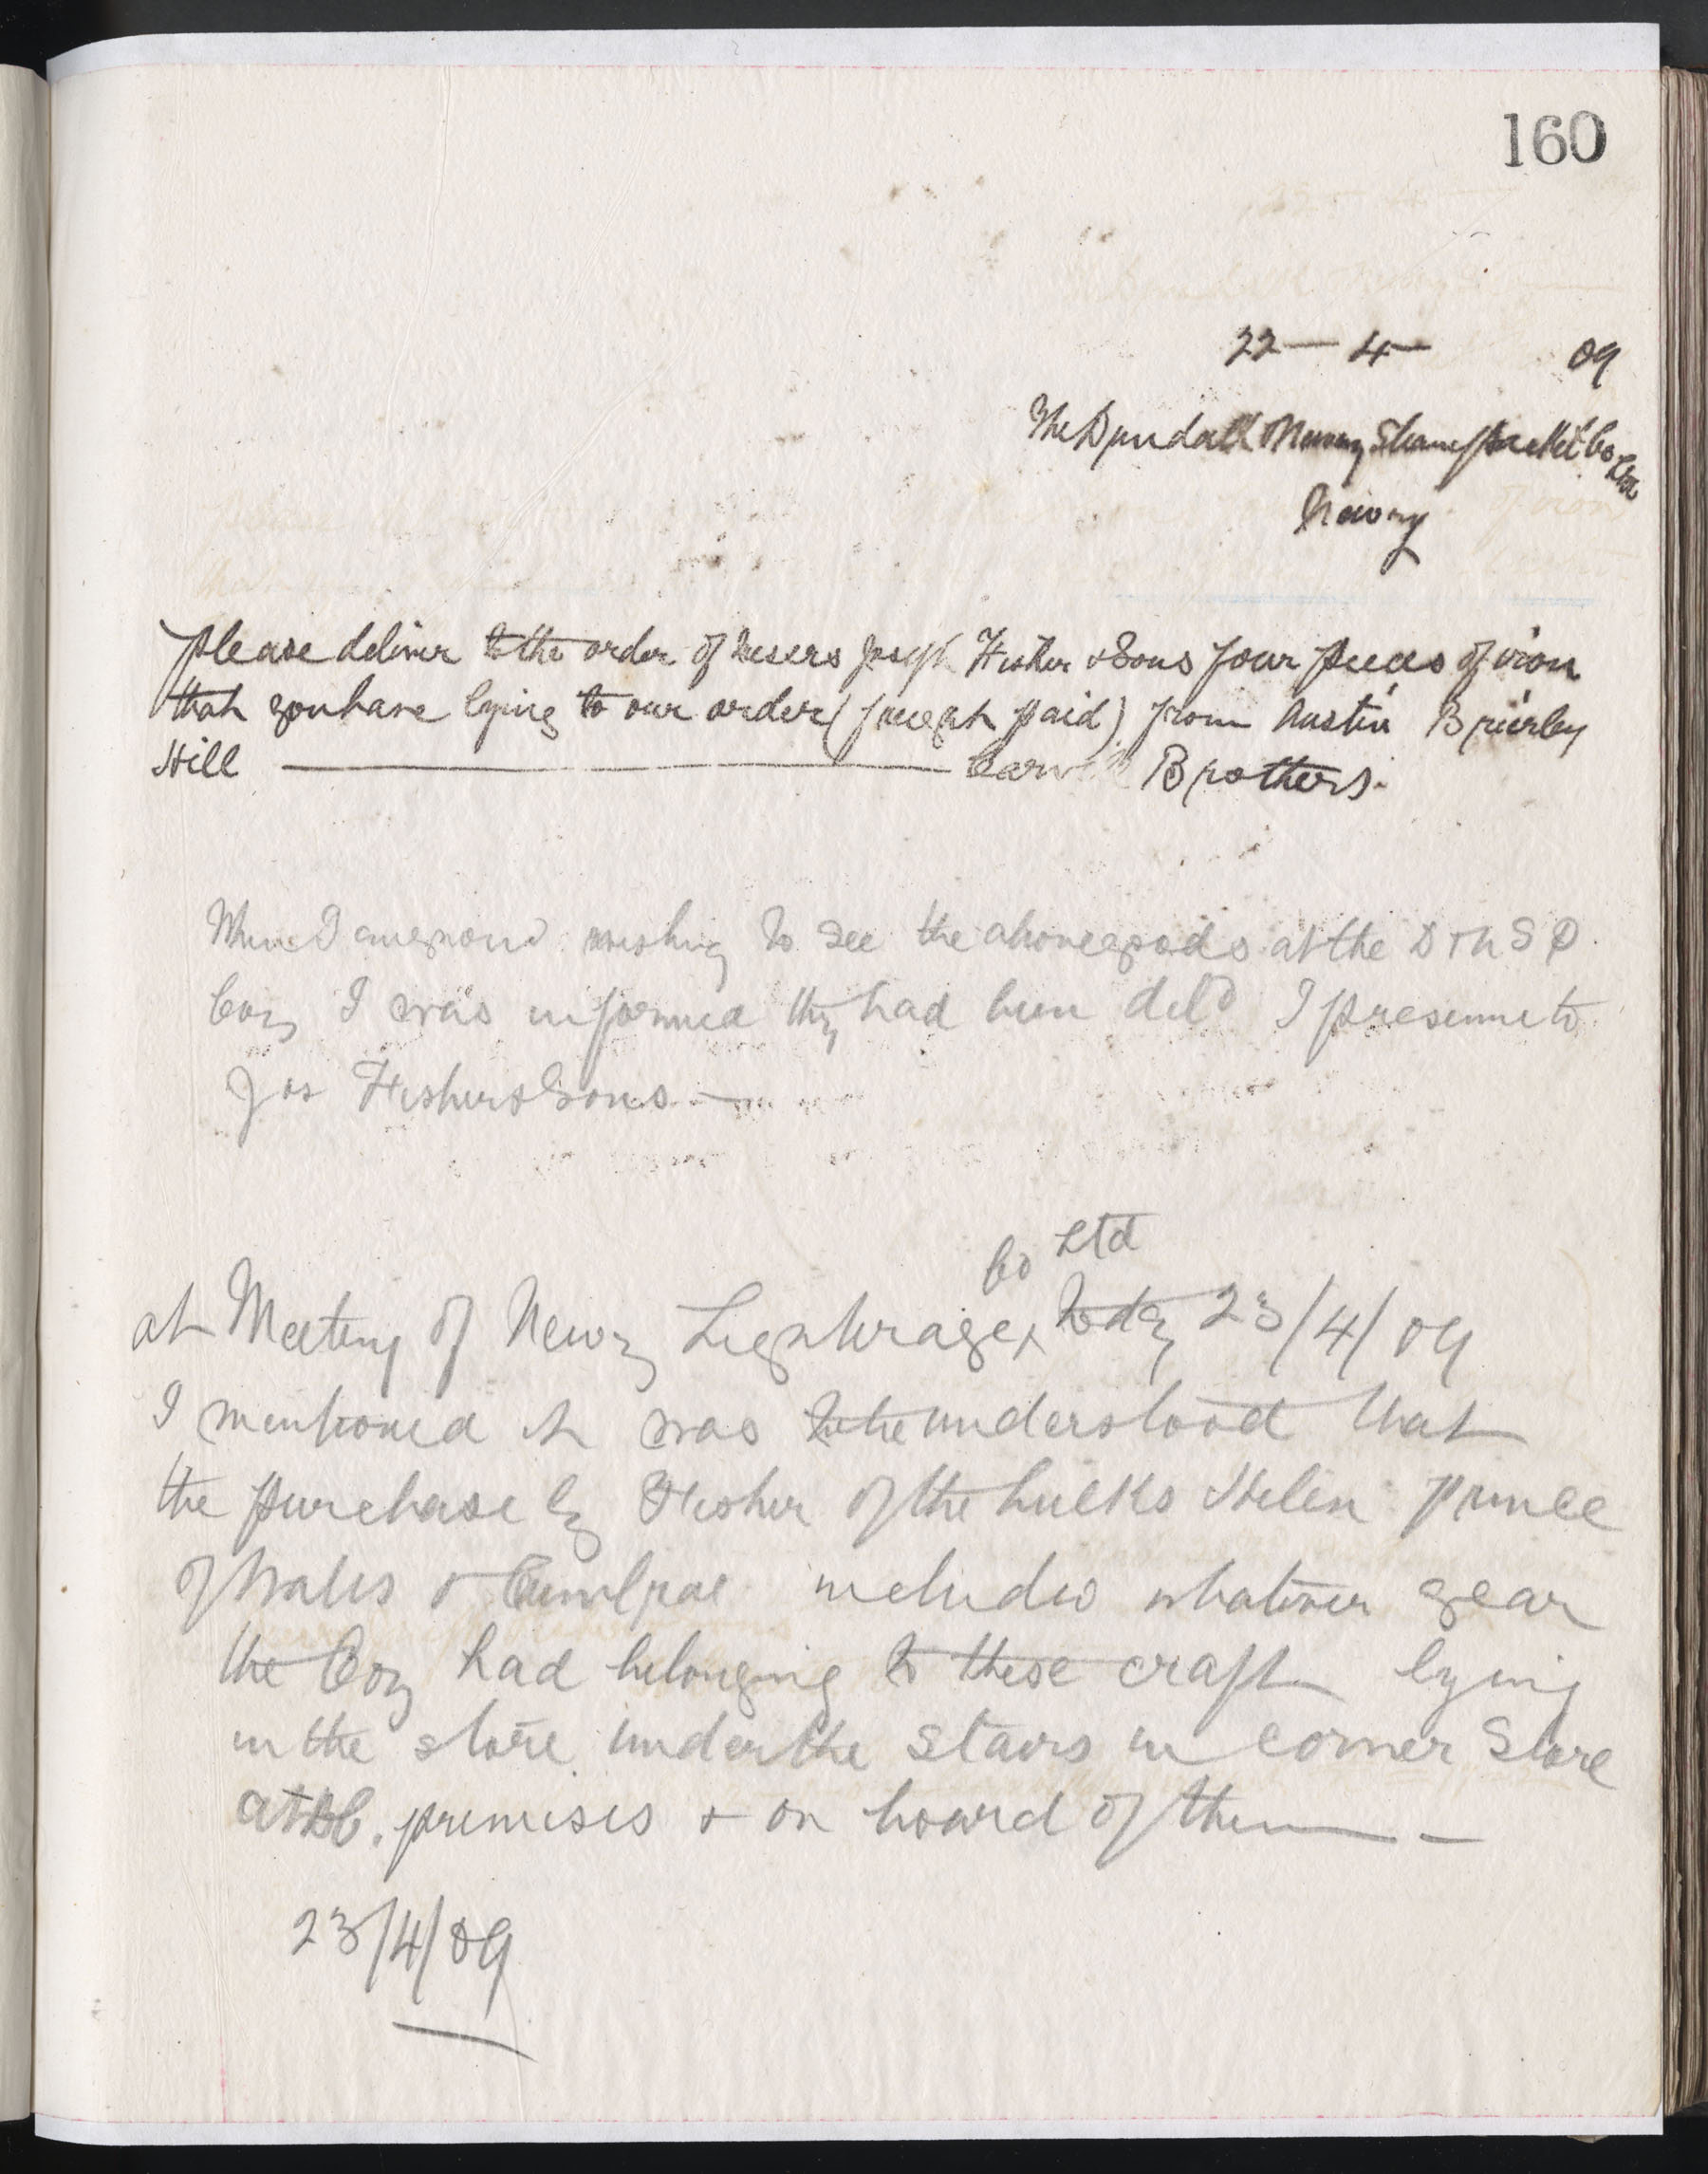 160
22 - 4 - 09
The Dundalk Newry Steampacket Co Ltd
Newry
Please deliver to the order of Messrs Joseph Fisher & Sons four pieces of iron
that you have lying to our order (freight paid) from Austin Brierley
Hill ——— Carvill Brothers.
When I wishing to see the above goods at the D & N S P
Coy I was informed they had been deld I presume to
Jos Fisher & Sons —
Co Ltd
at Meeting of Newry Lighterage x today 23/4/09
I mentioned it was to be understood that
the purchase by Fisher of the hulks Helen Prince
of Wales & includes whatever gear
the Coy had belonging to these craft lying
in the store under the stairs in corner Store
at premises & on board of them —
23/4/09